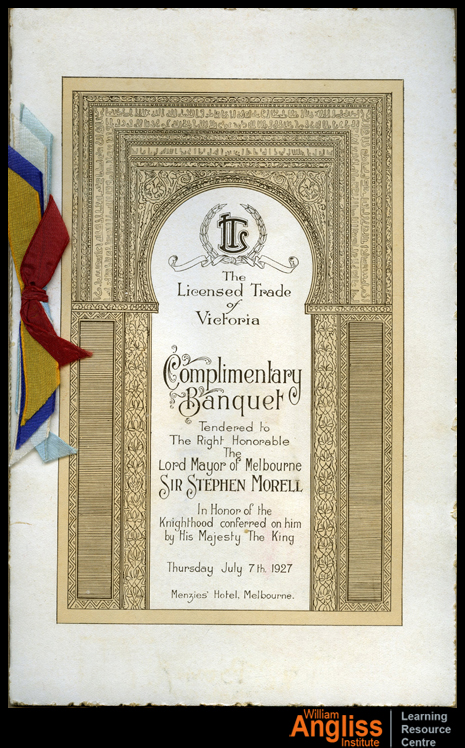 LTS
The
Licensed Trade
of
Victoria
Complimentary
Banquet
Tendered to
The Right Honorable
The
Lord Mayor of Melbourne
Sir Stephen Morell
In Honor of the
Knighthood conferred on him
by His Majesty The King
Thursday July 7th. 1927
Menzies' Hotel, Melbourne.
William
Angliss
Institute
Learning
Resource
Centre